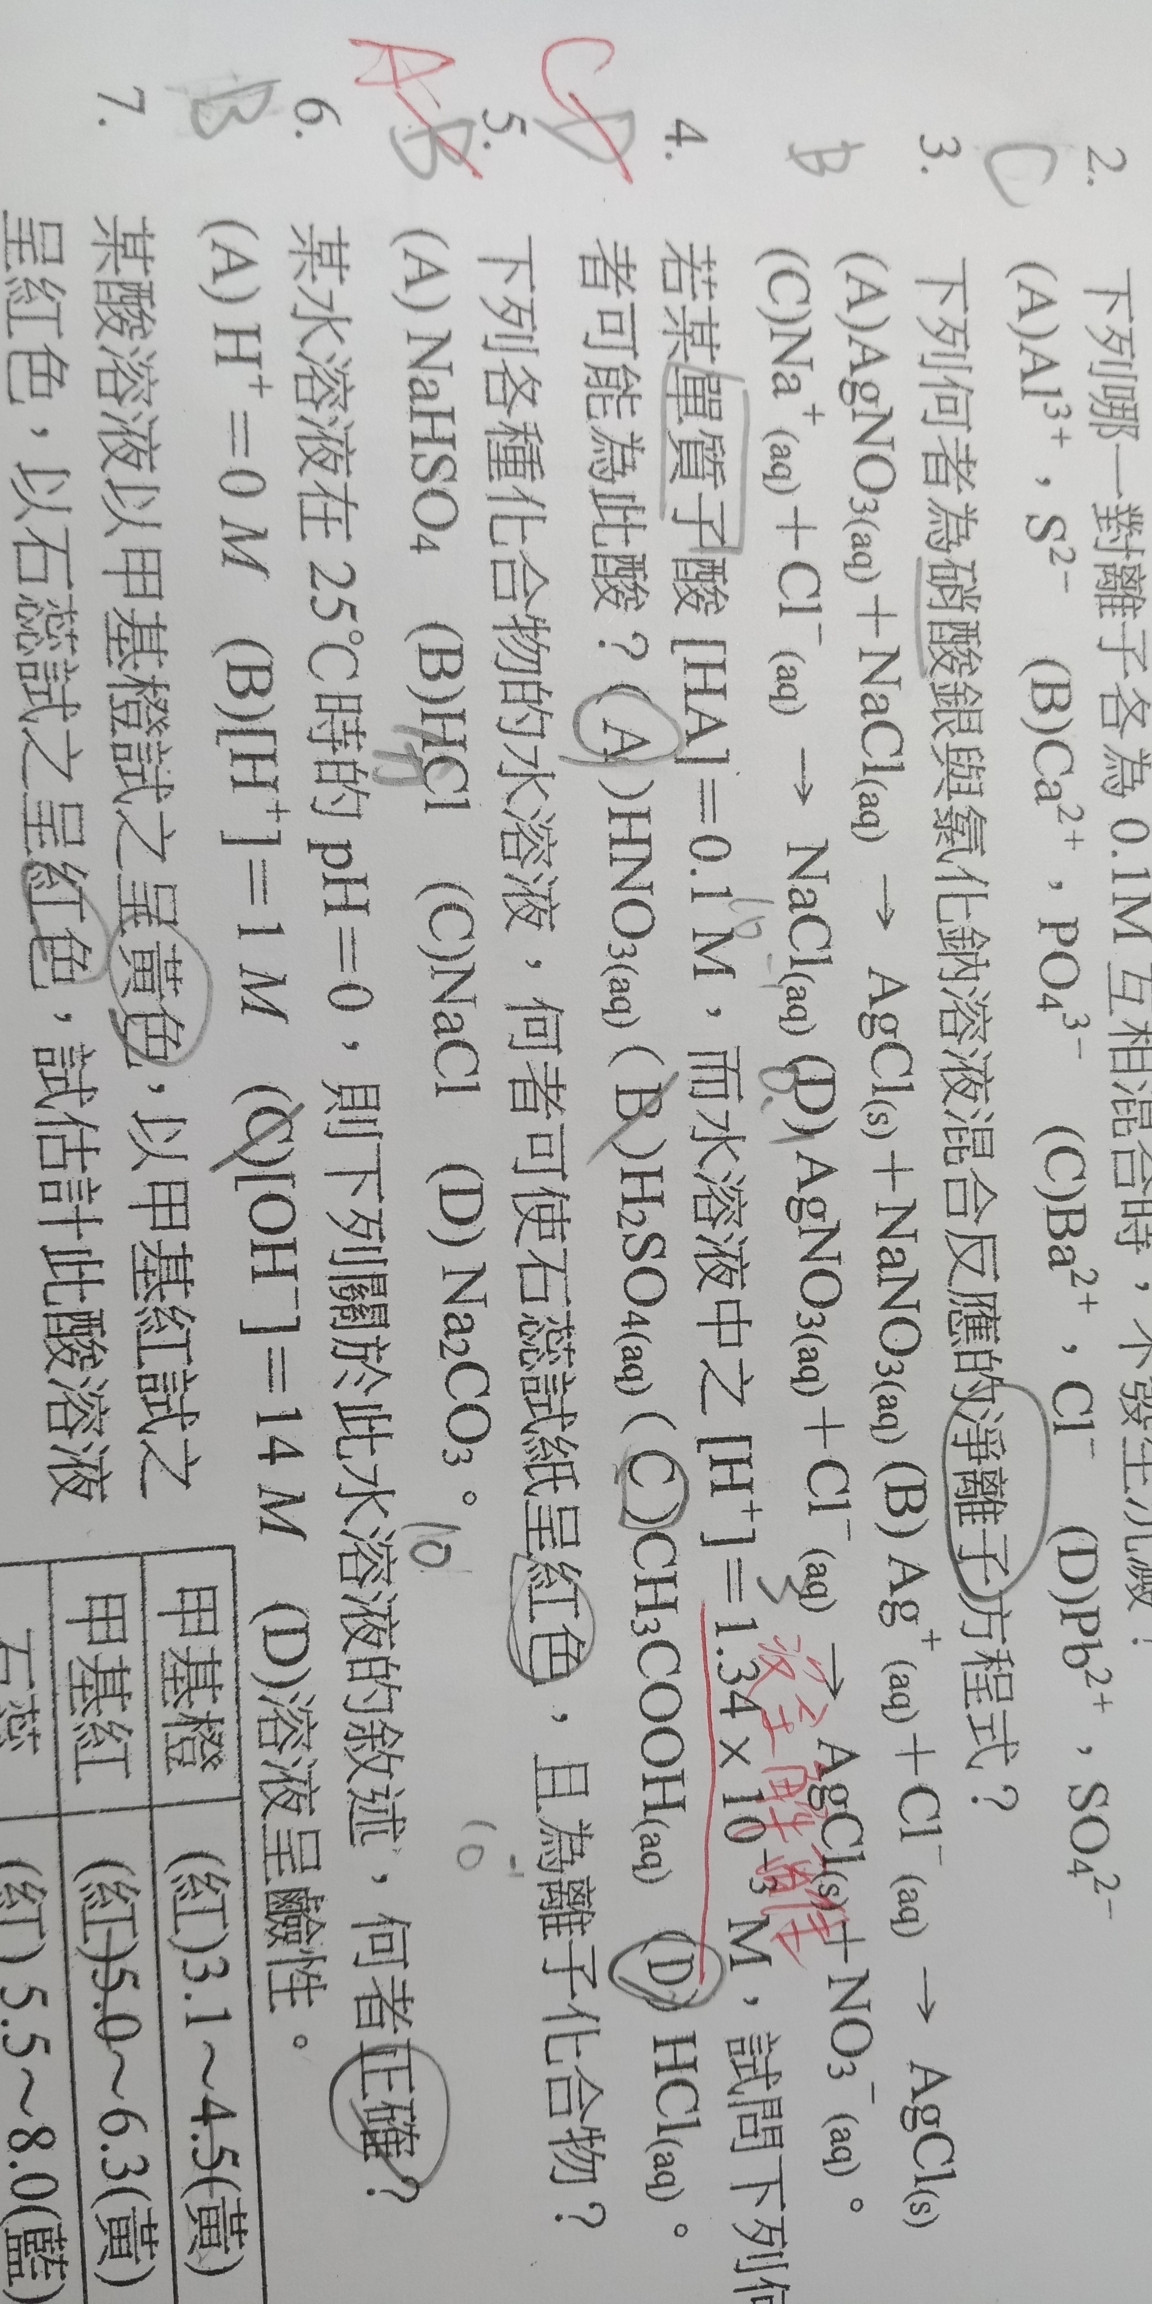 2. 下列哪一對離子各為 0.1M 互相混合時，不發生沉澱？
C (A)Al³⁺，S²⁻ (B)Ca²⁺，PO₄³⁻ (C)Ba²⁺，Cl⁻ (D)Pb²⁺，SO₄²⁻
3. 下列何者為硝酸銀與氯化鈉溶液混合反應的淨離子方程式？
(A)AgNO₃(aq)＋NaCl(aq) → AgCl(s)＋NaNO₃(aq) (B) Ag⁺(aq)＋Cl⁻(aq) → AgCl(s)
B (C)Na⁺(aq)＋Cl⁻(aq) → NaCl(aq) (D) AgNO₃(aq)＋Cl⁻(aq) → AgCl(s)＋NO₃⁻(aq)。
沒完全解離
4. 若某單質子酸 [HA]＝0.1 M，而水溶液中之 [H⁺]＝1.34 × 10⁻³ M，試問下列何
C D 者可能為此酸？(A)HNO₃(aq) (B)H₂SO₄(aq) (C)CH₃COOH(aq) (D) HCl(aq)。
5. 下列各種化合物的水溶液，何者可使石蕊試紙呈紅色，且為離子化合物？
A B (A) NaHSO₄ (B)HCl (C)NaCl (D) Na₂CO₃。
6. 某水溶液在 25℃時的 pH＝0，則下列關於此水溶液的敘述，何者正確？
B (A) H⁺＝0 M (B)[H⁺]＝1 M (C)[OH⁻]＝14 M (D)溶液呈鹼性。
7. 某酸溶液以甲基橙試之呈黃色，以甲基紅試之
呈紅色，以石蕊試之呈紅色，試估計此酸溶液
甲基橙 (紅)3.1～4.5(黃)
甲基紅 (紅)5.0～6.3(黃)
石蕊 (紅) 5.5～8.0(藍)